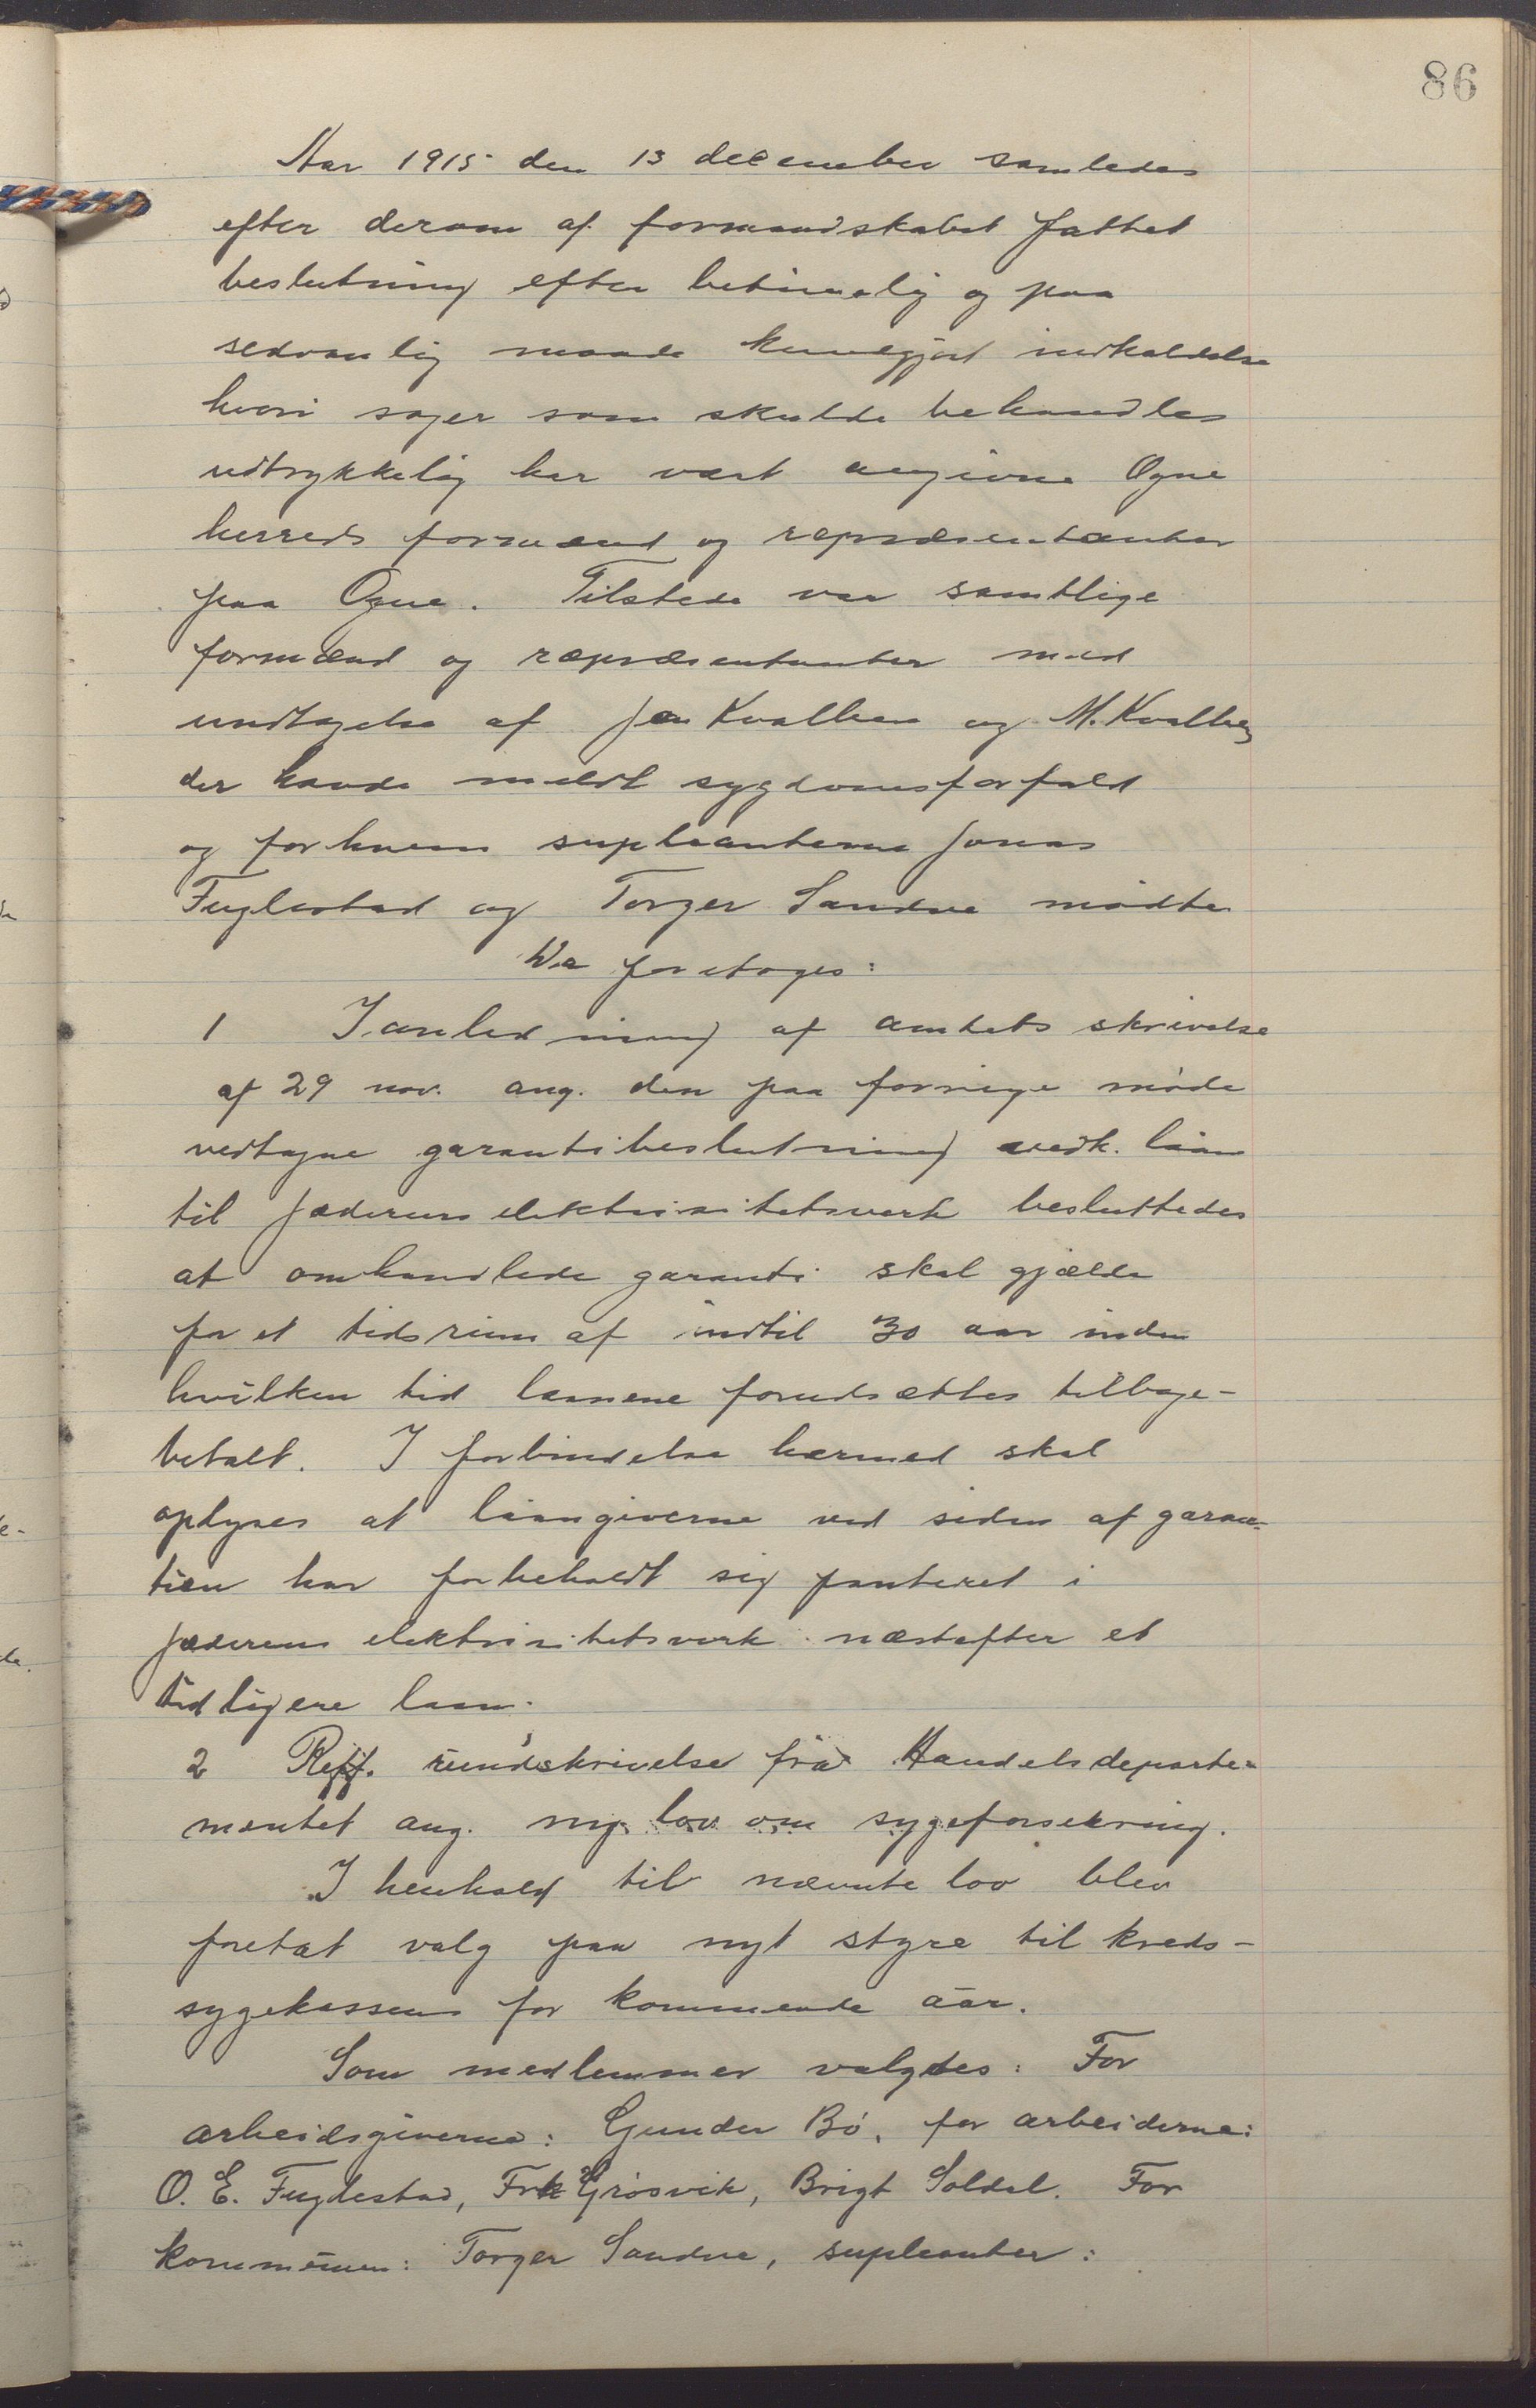 86
Aar 1915 den 13 december samledes
efter derom af formandskabet fattet
beslutning efter betimelig og paa
sedvanlig maade kundgjort indkaldelse
hvori sager som skulde behandles
udtrykkelig har vært angivne Ogne
herreds formænd og repræsentanter
paa Ogne. Tilstede var samtlige
formænd og repræsentanter med
undtagelse af Jan Kvalbein og M. Kvalbein
der havde meldt sygdomsforfald
og for hvem supleanterne Jonas
Fuglestad og Torger Sandve mødte
Da foretoges:
1 I anledning af amtets skrivelse
af 29 nov. ang. den paa forrige møde
vedtagne garantibeslutning vedk. laan
til Jæderens elektrisitetsverk besluttedes
at omhandlede garanti skal gjælde
for et tidsrum af indtil 30 aar inden
hvilken tid laanene forudsættes tilbage-
betalt. I forbindelse hermed skal
oplyses at laangiverne ved siden af garan-
tien har forbeholdt sig panteret i
Jæderens elektrisitetsverk næstefter et
tidligere laan.
2 Reff. rundskrivelse fra Handelsdeparte-
mentet ang. ny lov om sygeforsekring.
I henhold til nævnte lov blev
foretat valg paa nyt styre til kreds-
sygekassen for kommende aar.
Som medlemmer valgtes: For
arbeidsgiverne: Gunder Bø, for arbeiderne:
O. E. Fuglestad, Frk Grøsvik, Brigt Soldal. For
kommunen: Torger Sandve, supleanter: